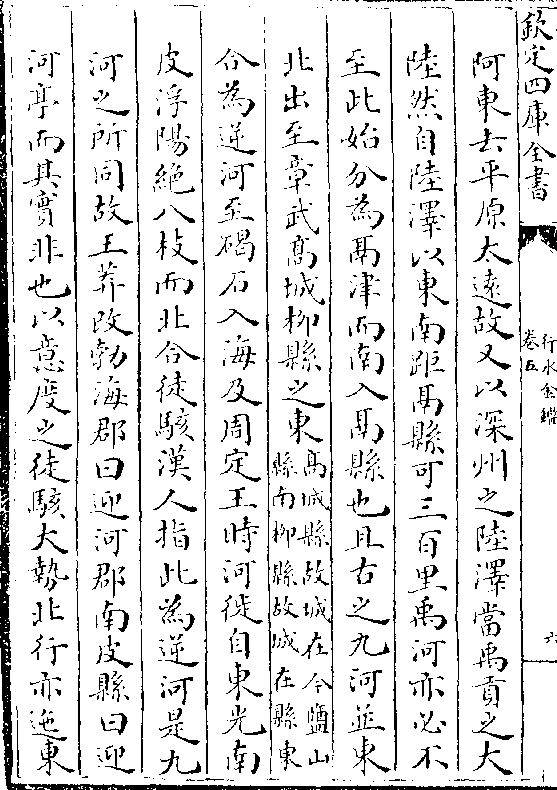 欽定四庫全書
行水金鑑
卷五
六
阿東去平原太遠故又以深州之陸澤當禹貢之大
陸然自陸澤以東南距鬲縣可三百里禹河亦必不
至此始分為鬲津而南入鬲縣也且古之九河並東
北出至章武髙城柳縣之東髙城縣故城在今鹽山
縣南柳縣故城在縣東
合為逆河至碣石入海及周定王時河徙自東光南
皮浮陽絶八枝而北合徒駭漢人指此為逆河是九
河之所同故王莽改勃海郡曰迎河郡南皮縣曰迎
河亭而其實非也以意度之徒駭大勢北行亦迤東